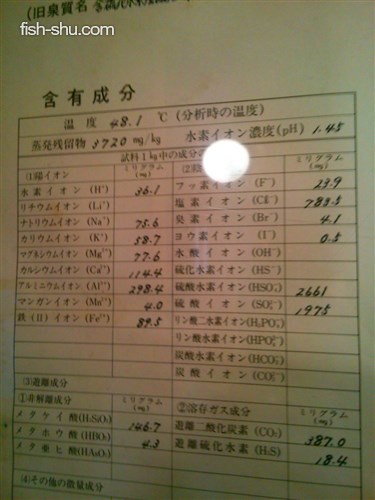 fish-shu.com
(旧泉質名 含硫化水素
含有成分
温度 48.1 ℃ (分析時の温度)
蒸発残留物 3720 mg/kg 水素イオン濃度(pH) 1.45
試料1kg中の成分
(1)陽イオン ミリグラム(mg)
水素イオン (H⁺) 36.1
リチウムイオン (Li⁺)
ナトリウムイオン (Na⁺) 75.6
カリウムイオン (K⁺) 58.7
マグネシウムイオン (Mg²⁺) 77.6
カルシウムイオン (Ca²⁺) 114.4
アルミニウムイオン (Al³⁺) 298.4
マンガンイオン (Mn²⁺) 4.0
鉄(II)イオン (Fe²⁺) 89.5
(2) ミリグラム(mg)
フッ素イオン (F⁻) 23.9
塩素イオン (Cl⁻) 789.5
臭素イオン (Br⁻) 4.1
ヨウ素イオン (I⁻) 0.5
水酸イオン (OH⁻)
硫化水素イオン (HS⁻)
硫酸水素イオン (HSO₄⁻) 2661
硫酸イオン (SO₄²⁻) 1975
リン酸二水素イオン (H₂PO₄⁻)
リン酸水素イオン (HPO₄²⁻)
炭酸水素イオン (HCO₃⁻)
炭酸イオン (CO₃²⁻)
(3)遊離成分
①非解離成分 ミリグラム(mg)
メタケイ酸 (H₂SiO₃) 146.7
メタホウ酸 (HBO₂) 4.3
メタ亜ヒ酸 (HAsO₂)
②溶存ガス成分 ミリグラム(mg)
遊離二酸化炭素 (CO₂) 387.0
遊離硫化水素 (H₂S) 18.4
(4)その他の微量成分